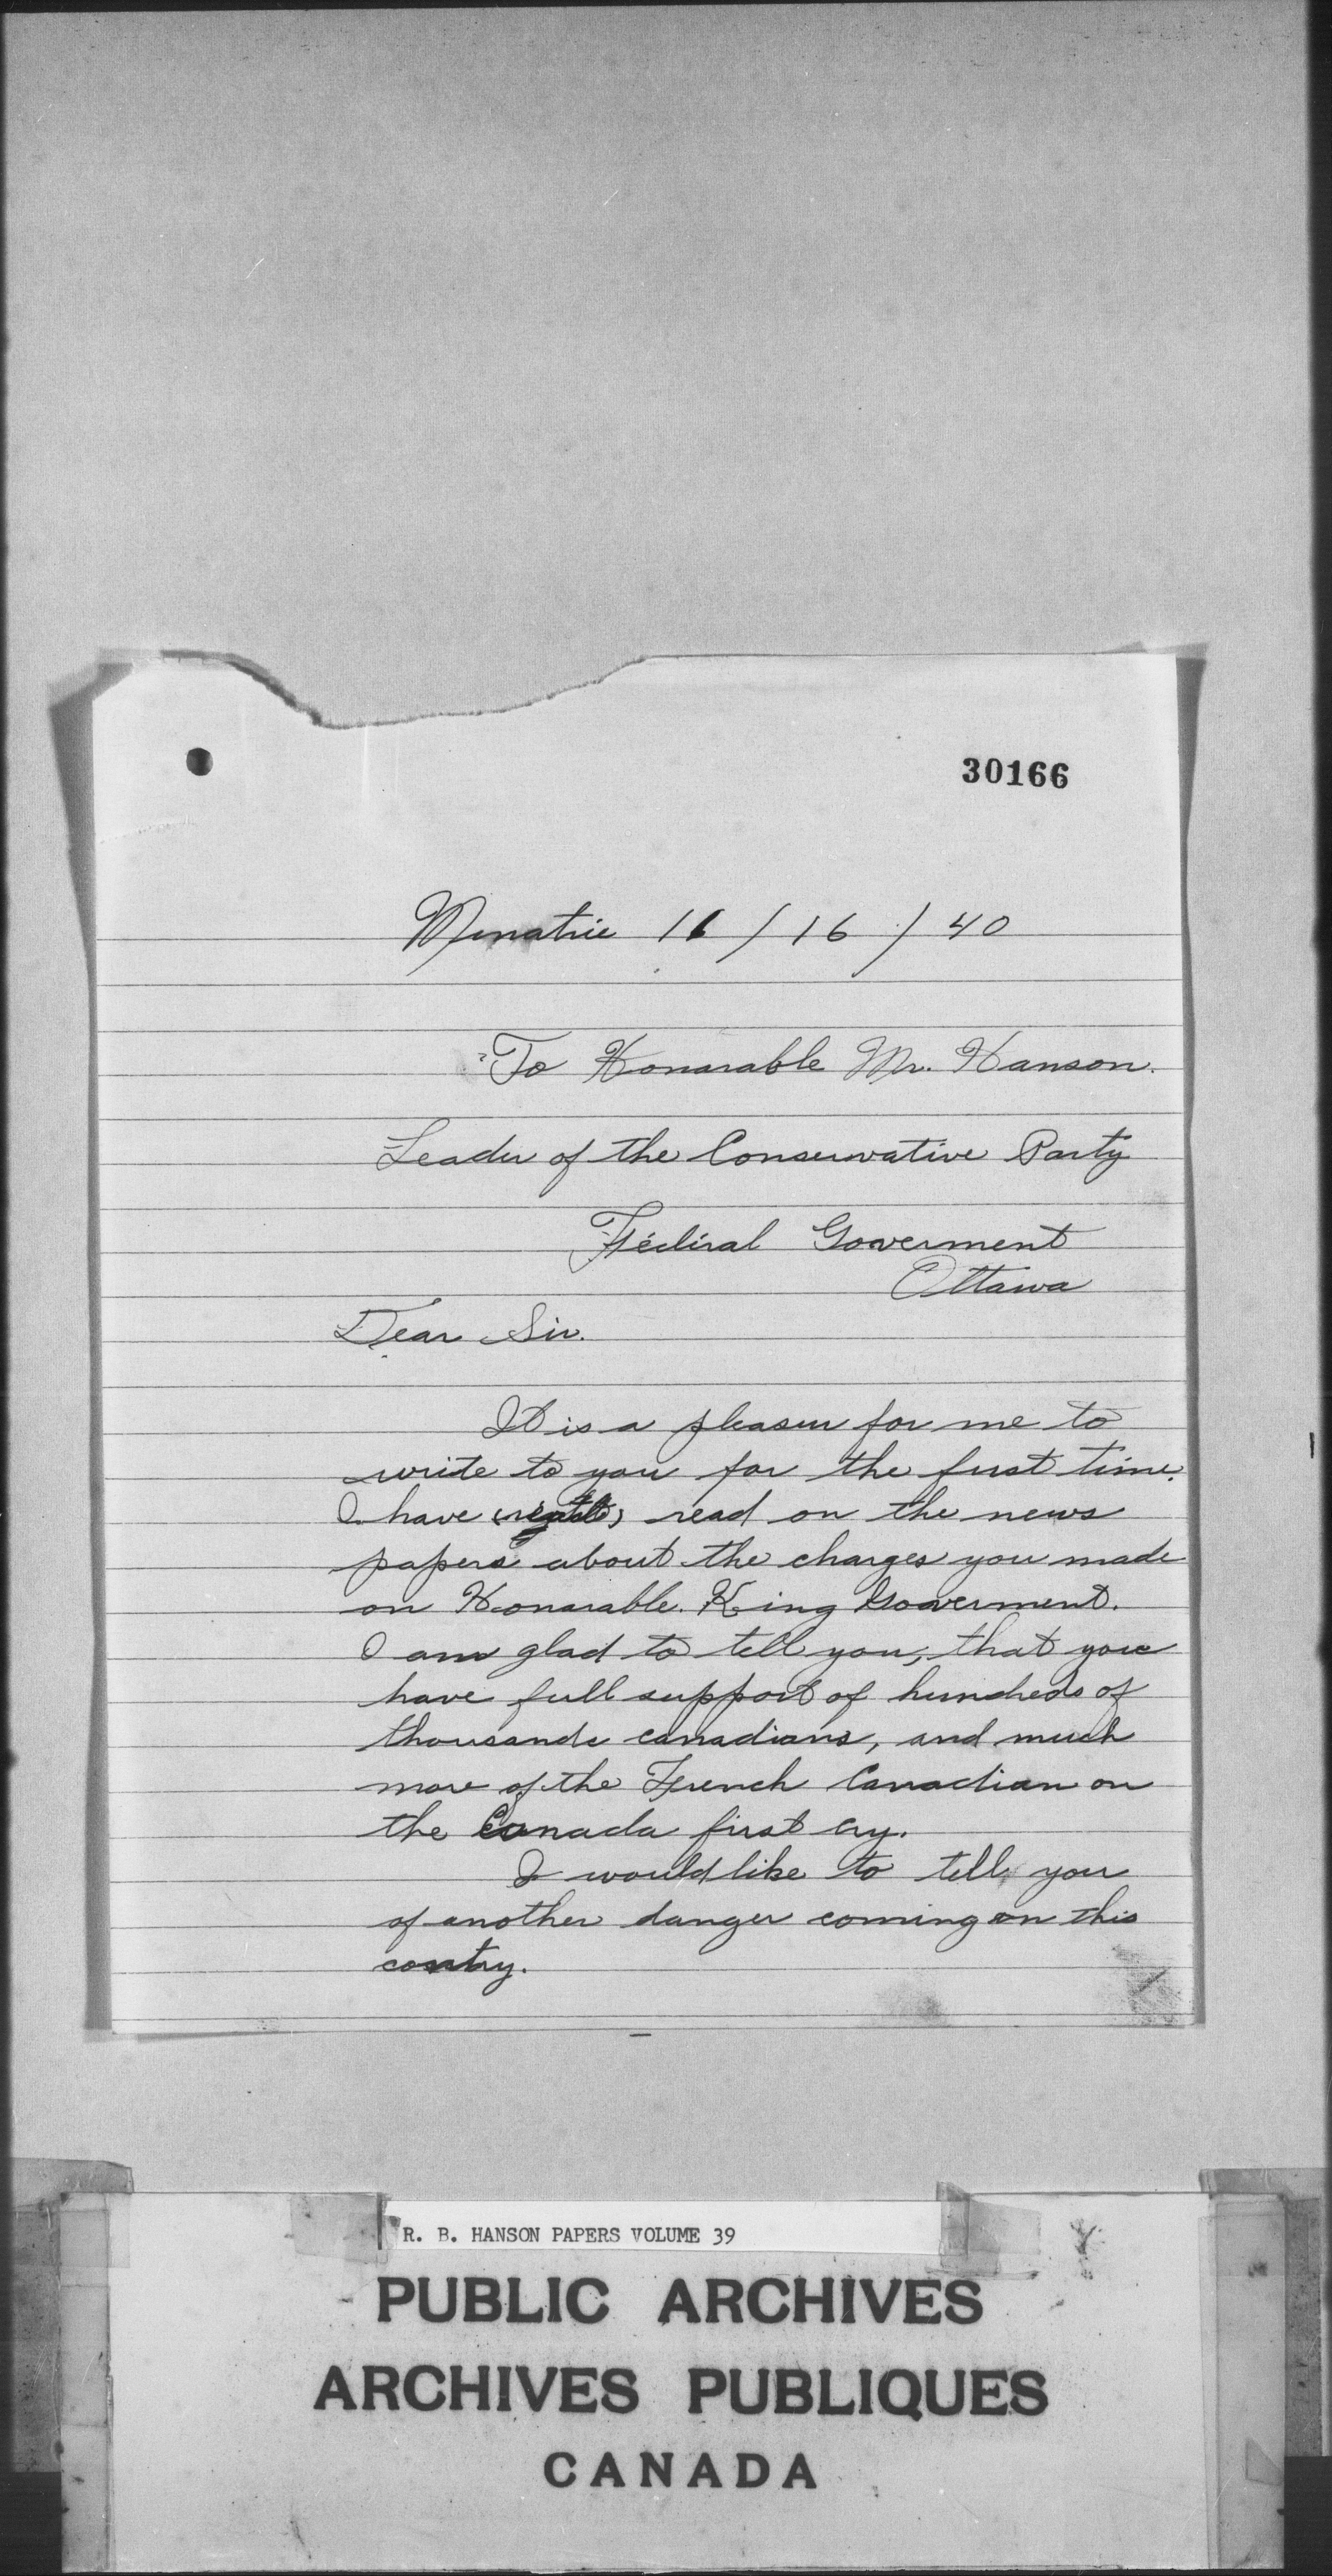 30166
Menatrie 11 / 16 / 40
To Honarable Mr. Hanson.
Leader of the Conservative Party
Fédéral Goverment
Ottawa
Dear Sir.
It is a pleasur for me to
write to you for the first time.
I have read on the news
papers about the charges you made
on Honarable. King Goverment.
I am glad to tell you, that you
have full support of hundreds of
thousands canadians, and much
more of the French Canadian on
the Canada first cry.
I would like to tell you
of another danger coming on this
contry.
R. B. HANSON PAPERS VOLUME 39
PUBLIC ARCHIVES
ARCHIVES PUBLIQUES
CANADA